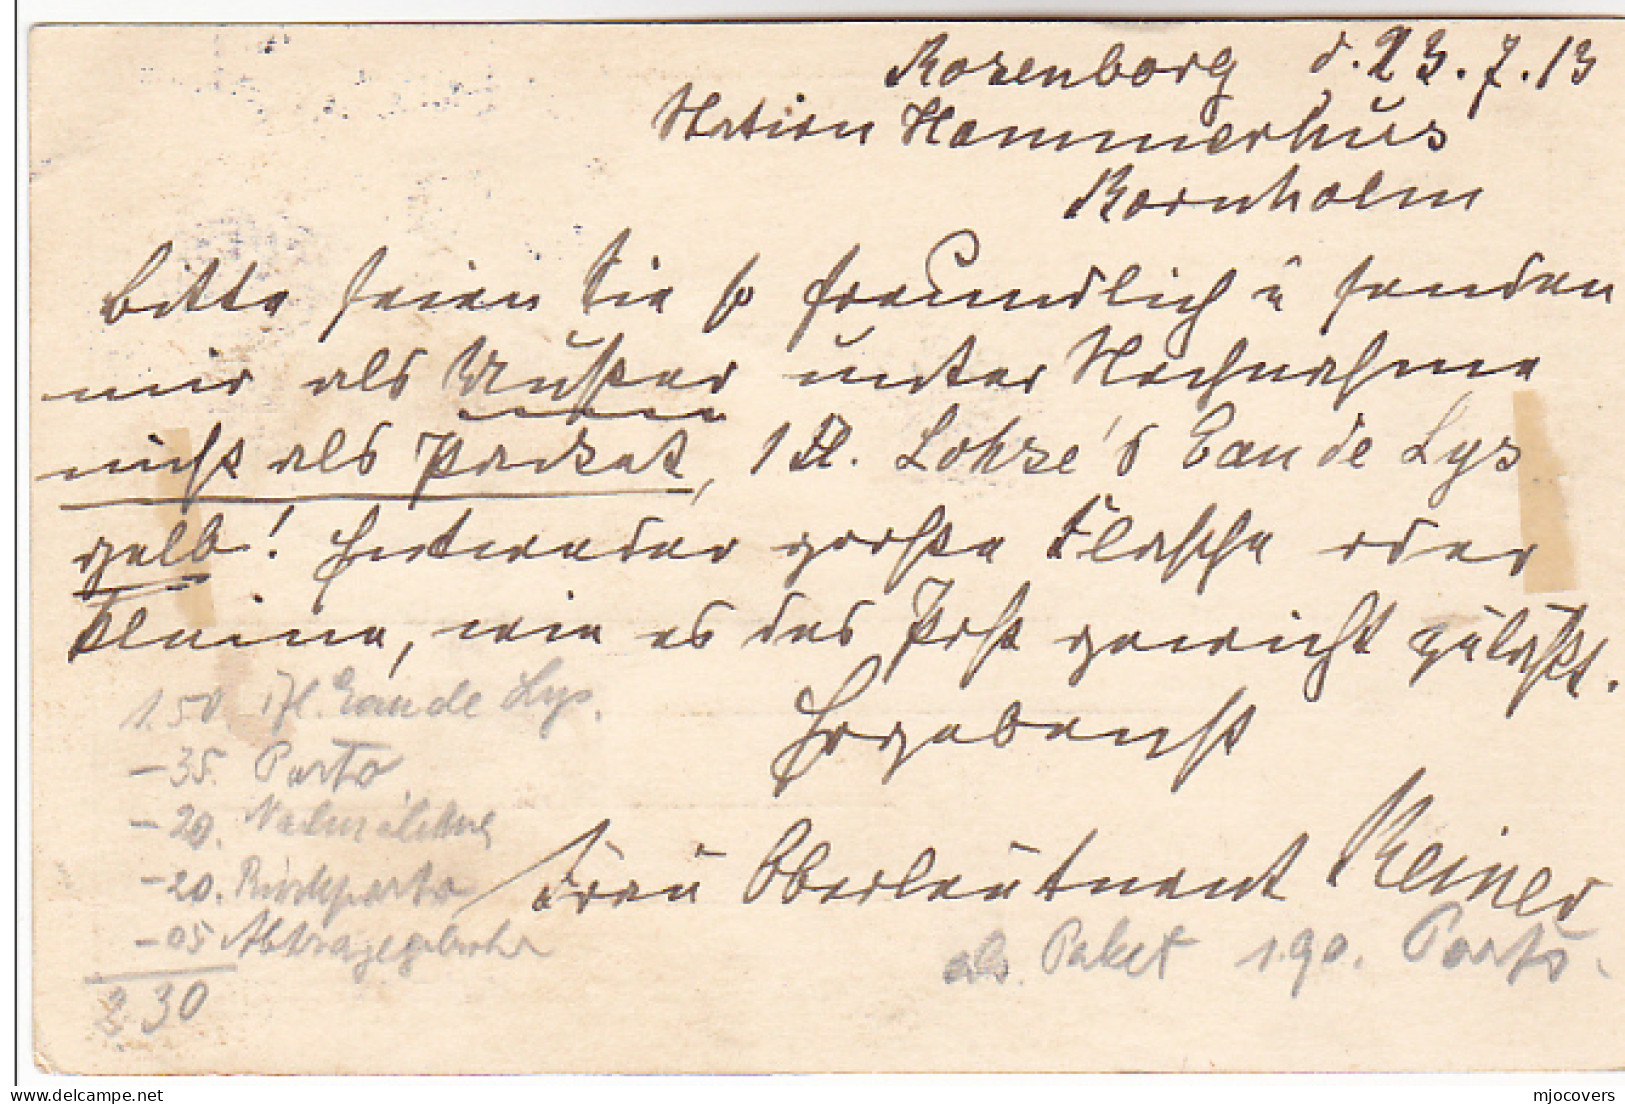 Rosenborg d. 23.7.13
Station Hammerhus
Bornholm
Bitte seien Sie so freundlich u senden
mir als Muster unter Nachnahme
nicht als Packet, 1 Fl. Lohse's Eau de Lys
gelb! Entweder große Flasche oder
kleine, wie es das Post gewicht zuläßt.
Ergebenst
Frau Oberleutnant Reiner
1.50 1 Fl. Eau de Lys.
-35. Porto
-20.
-20. Rückporto
-05 Abtragegebühr
2.30
als Paket 1.90. Porto.
mjocovers
delcampe.net